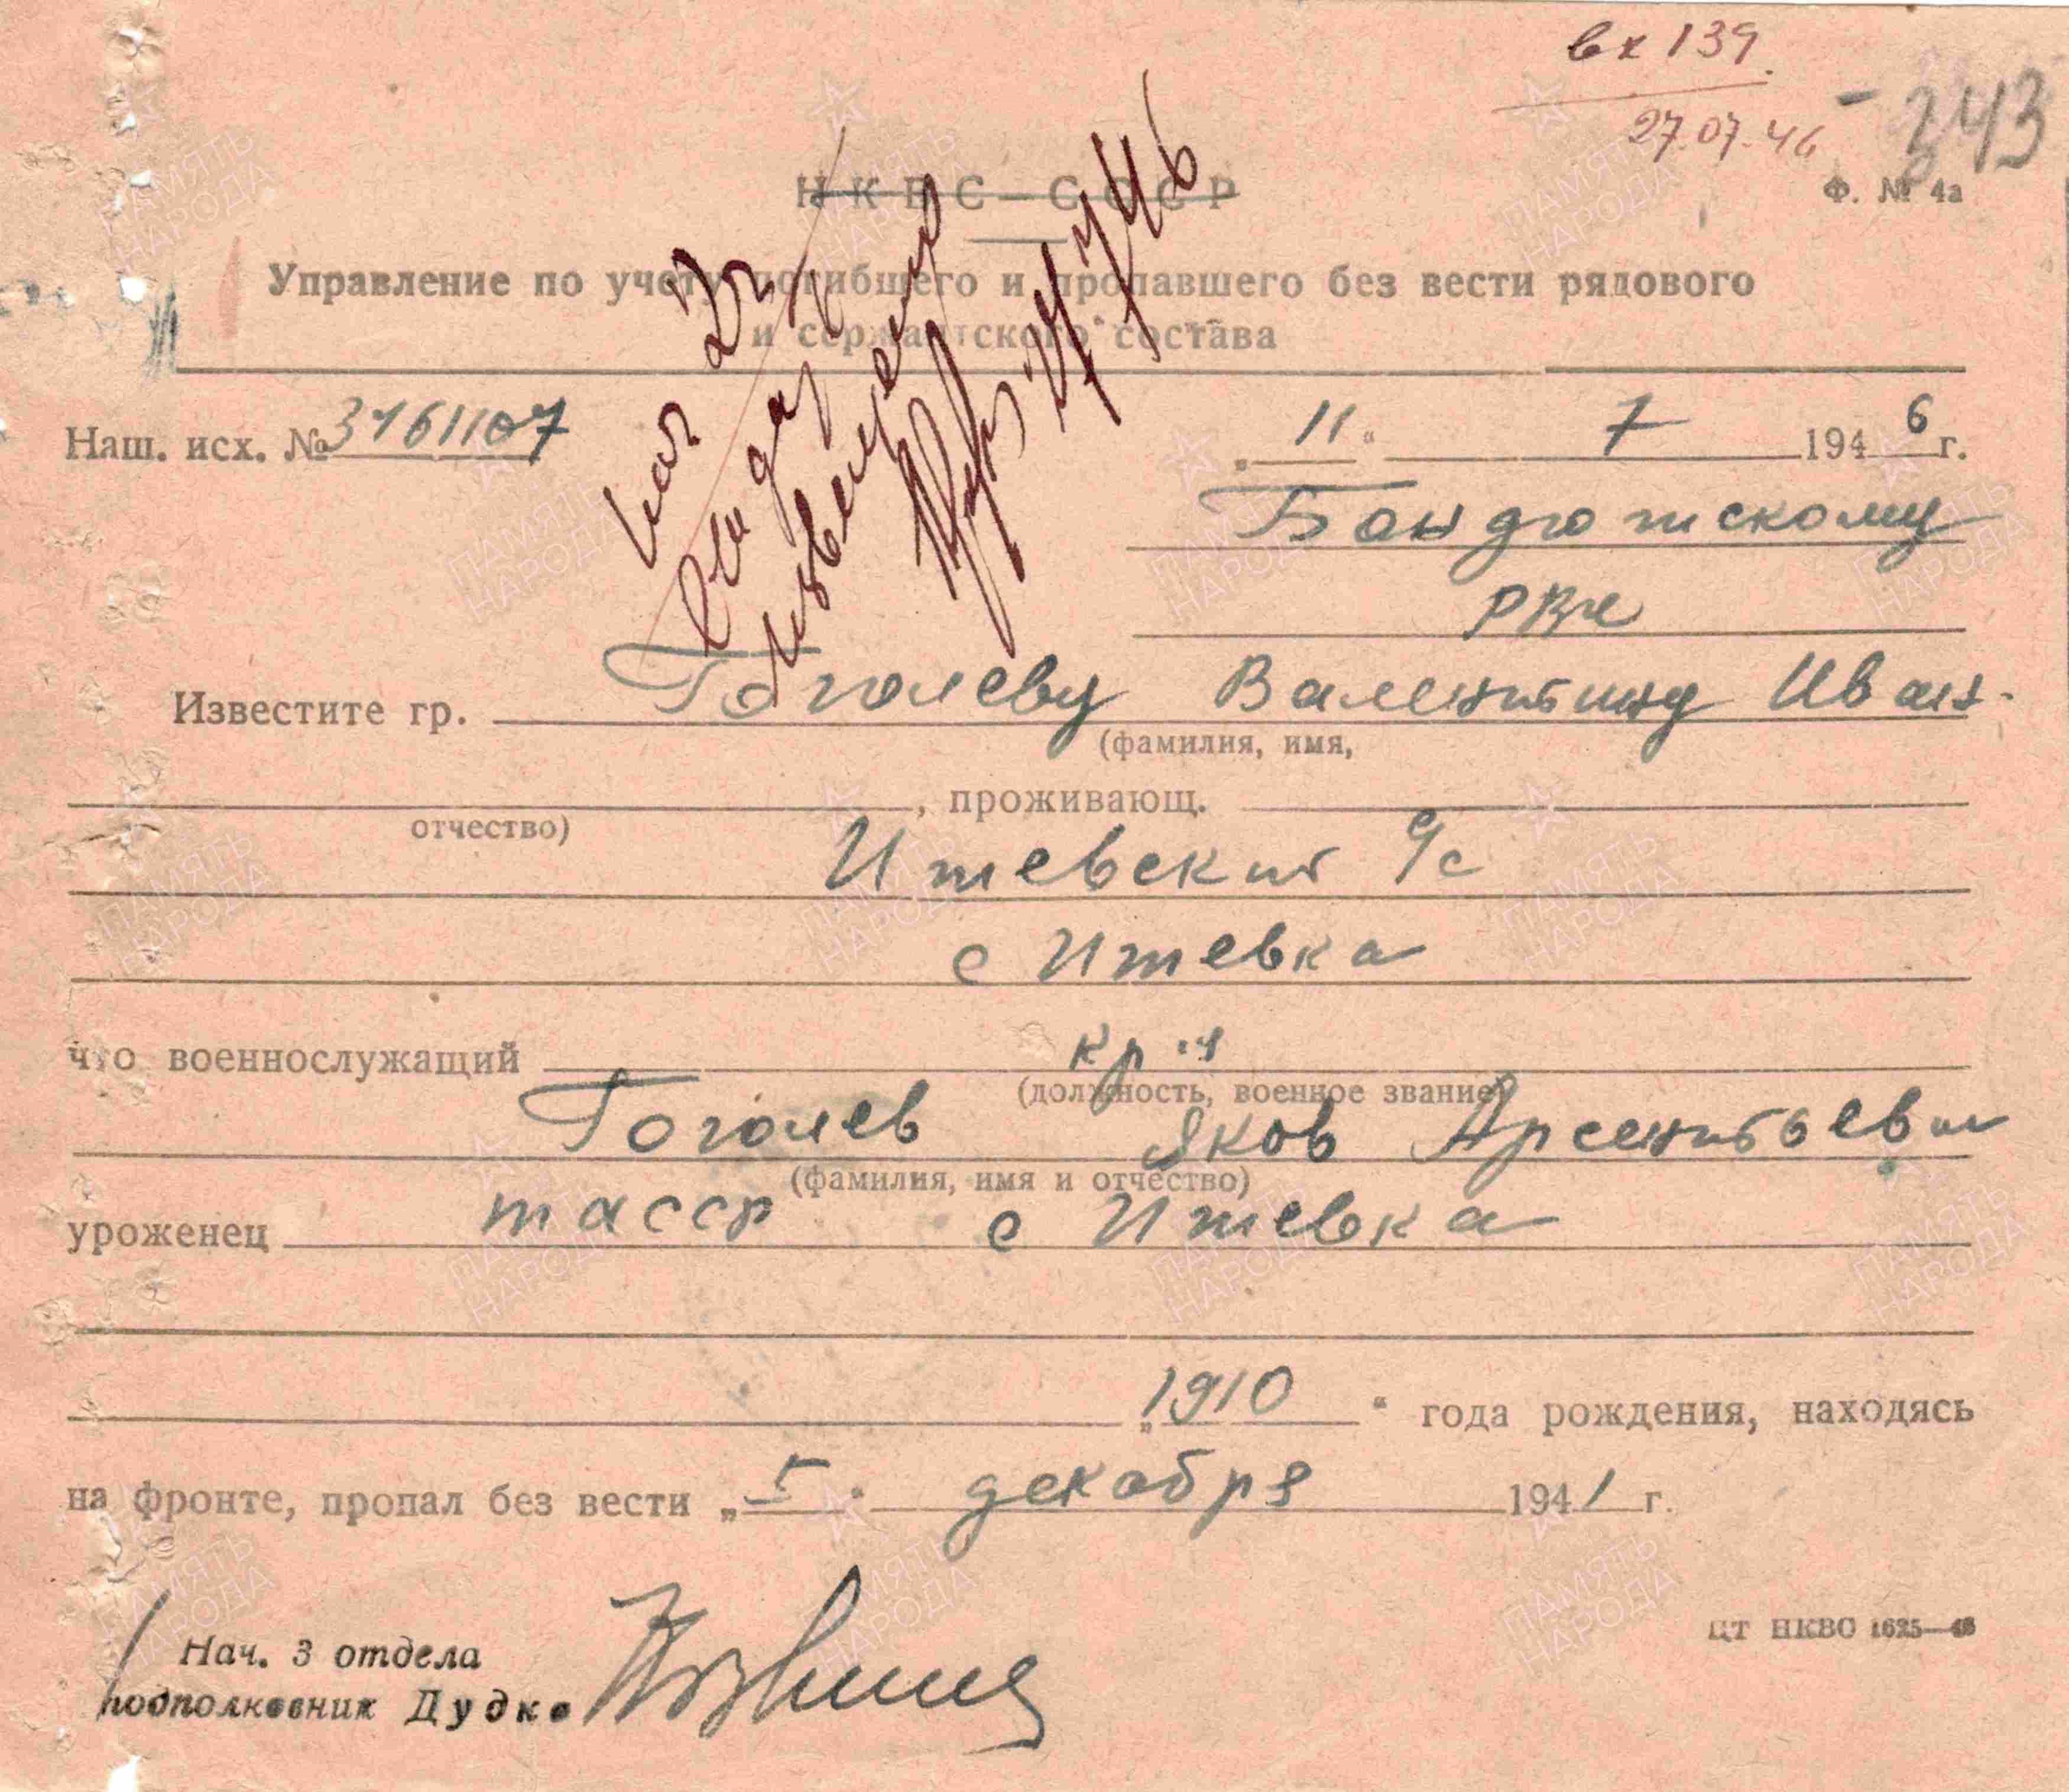 вх 139.
27.07.46
243
НКВС—СССР
Ф. № 4а
Управление по учету погибшего и пропавшего без вести рядового
и сержантского состава
Наш. исх. № 3761107
„11" 7 1946 г.
Бондюжскому
РВК
Известите гр. Гоголеву Валентину Иван.
(фамилия, имя,
отчество)
, проживающ.
Ижевский с/с
с Ижевка
что военнослужащий кр-ц
(должность, военное звание)
Гоголев Яков Арсентьевич
(фамилия, имя и отчество)
уроженец тасср с Ижевка
„1910" года рождения, находясь
на фронте, пропал без вести „5" декабря 1941 г.
Нач. 3 отдела
подполковник Дудко
ЦТ НКВО 1625—46
ПАМЯТЬ НАРОДА